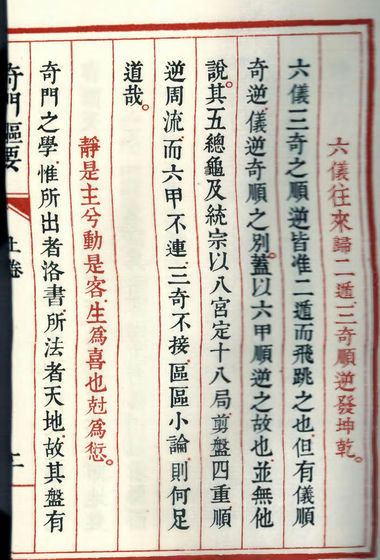 六儀往來歸二遁.三奇順逆發坤乾。
六儀三奇之順逆皆准二遁而飛跳之也.但有儀順
奇逆.儀逆奇順之別。蓋以六甲順逆之故也.並無他
說。其五總龜及統宗以八宮定十八局.剪盤四重順
逆周流.而六甲不連.三奇不接.區區小論.則何足
道哉。
靜是主兮動是客.生爲喜也尅爲愆。
奇門之學.惟所出者洛書.所法者天地.故其盤有
奇門樞要
上卷